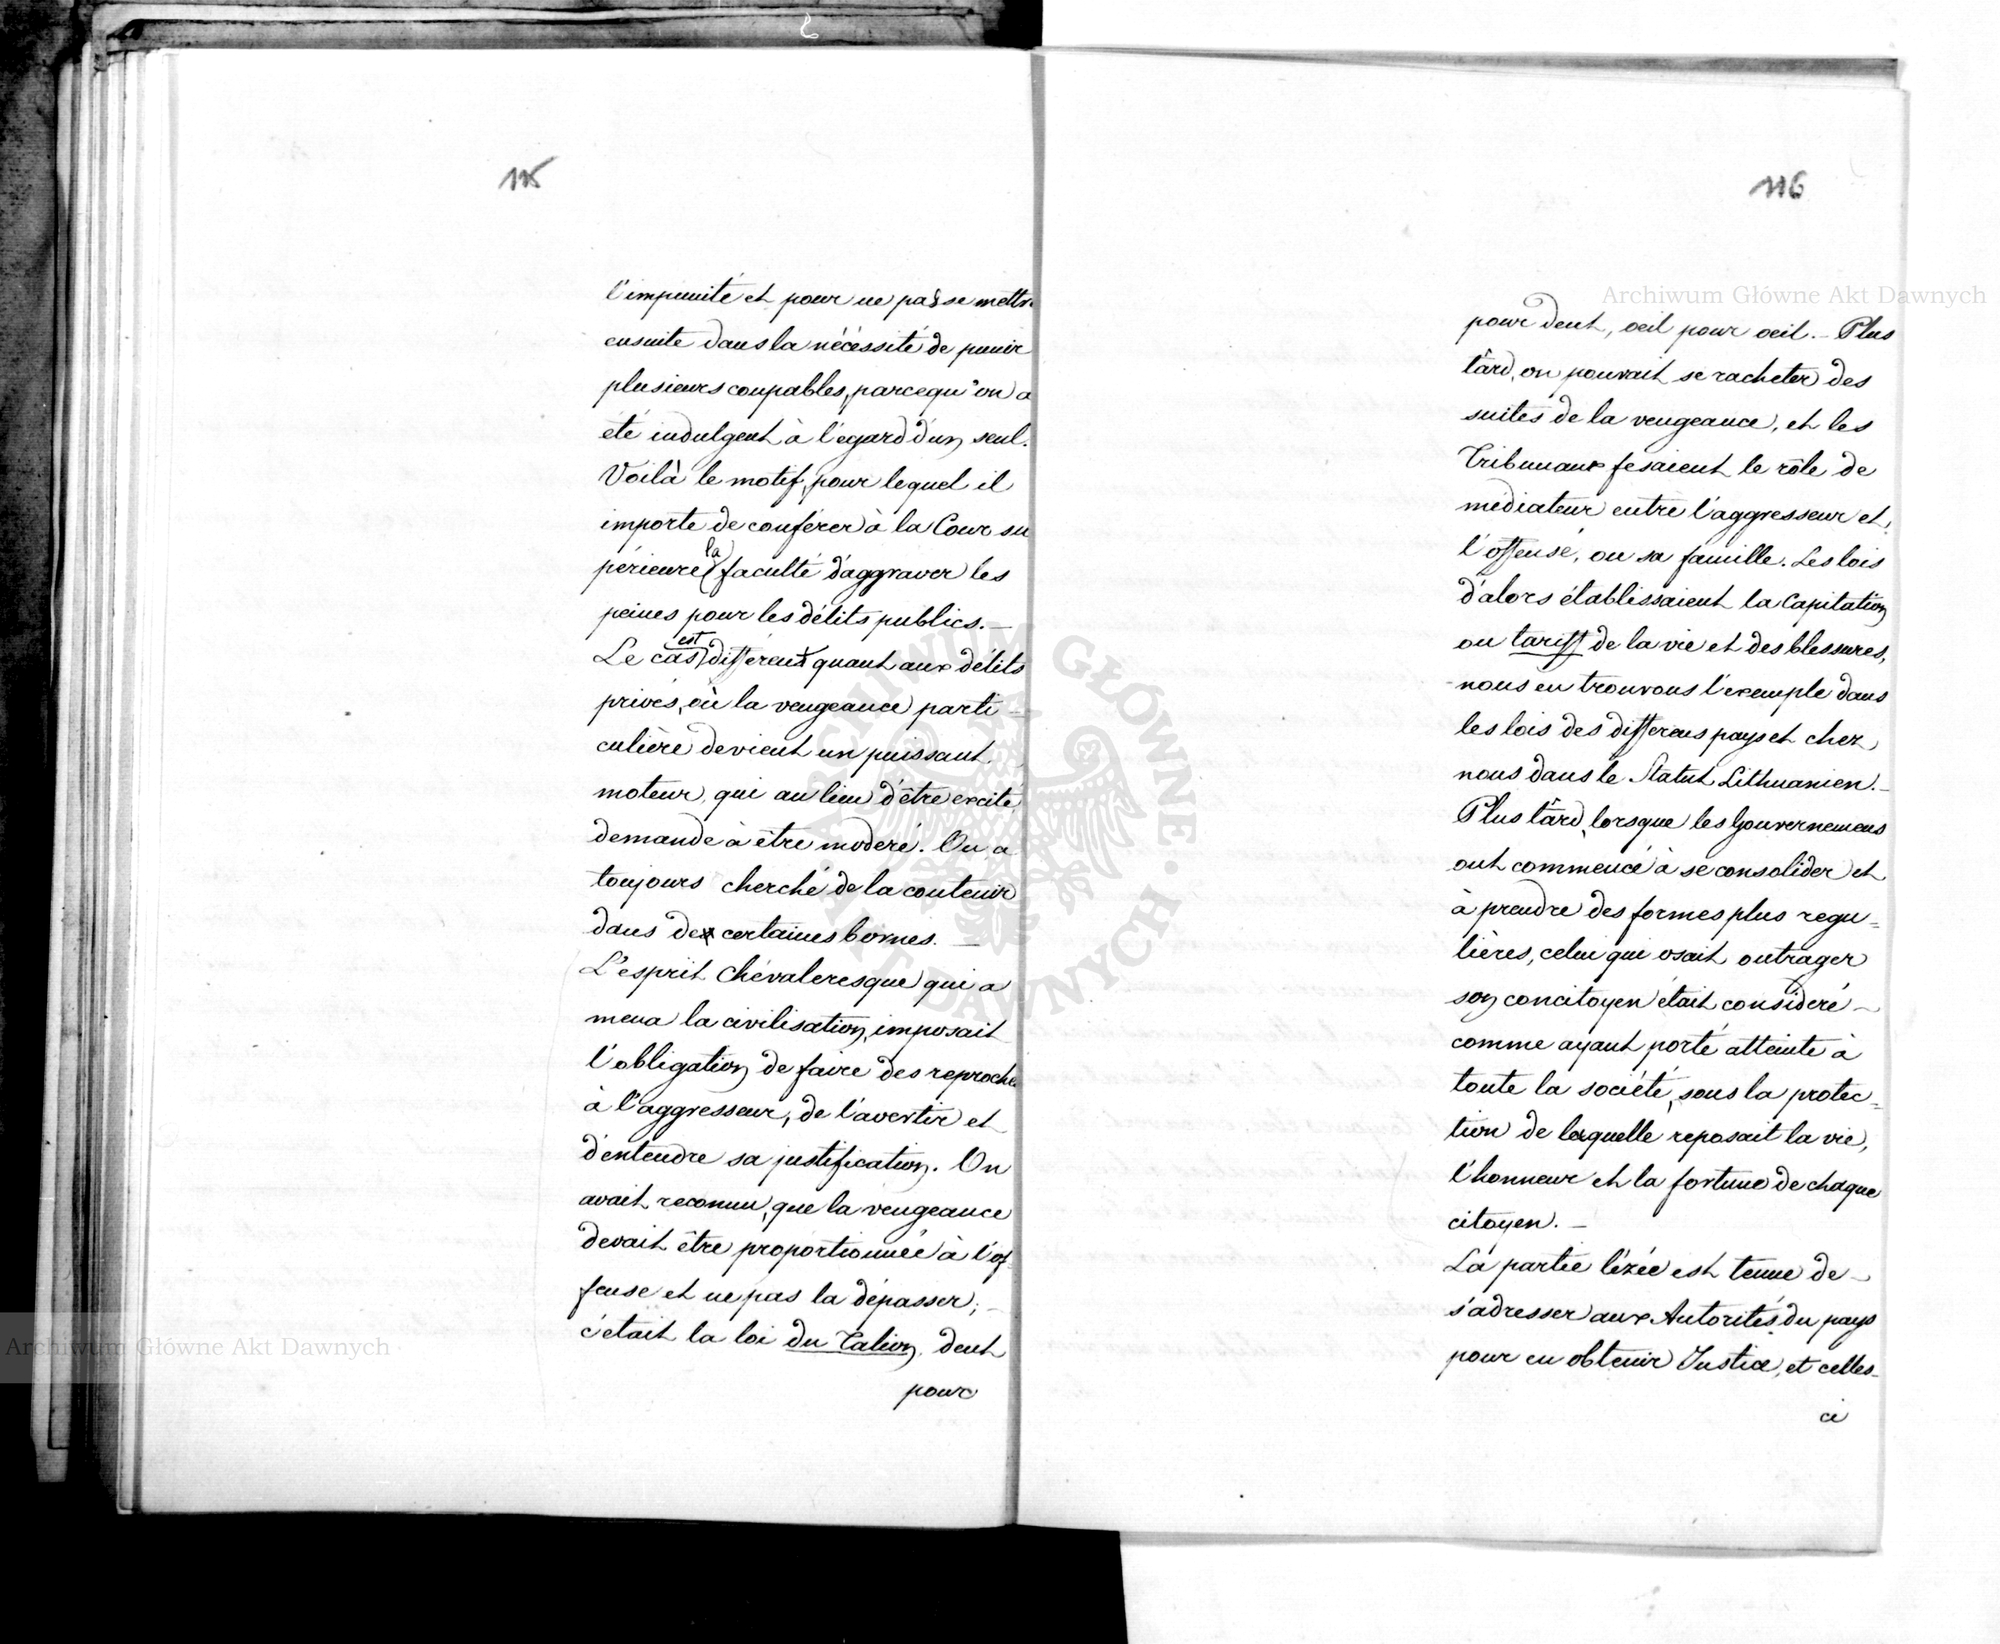 115
l'impunité et pour ne pas se mettre
ensuite dans la nécéssité de punir
plusieurs coupables, parcequ'on a
été indulgent à l'egard d'un seul.
Voilà le motif, pour lequel il
importe de conférer à la Cour su
périeure la faculté d'aggraver les
peines pour les délits publics. —
Le cas est différent quant aux délits
privés, où la vengeance parti-
culière devient un puissant
moteur, qui au lieu d'être excité
demande à être moderé. On a
toujours cherché de la contenir
dans de certaines bornes. —
L'esprit chévaleresque qui a
mena la civilisation, imposait
l'obligation de faire des reproches
à l'aggresseur, de l'avertir et
d'entendre sa justification. On
avait reconnu, que la vengeance
devait être proportionnée à l'of-
fense et ne pas la dépasser; —
c'était la loi du Talion, dent
pour
116
pour dent, oeil pour oeil. — Plus
târd, on pouvait se racheter des
suites de la vengeance, et les
Tribunaux fesaient le rôle de
médiateur entre l'aggresseur et
l'offensé, ou sa famille. Les lois
d'alors établissaient la Capitation
ou tariff de la vie et des blessures,
nous en trouvons l'exemple dans
les lois des differens pays et chez
nous dans le Statut Lithuanien. —
Plus târd, lorsque les Gouvernemens
ont commencé à se consolider et
à prendre des formes plus regu=
lières, celui qui osait outrager
son concitoyen était consideré —
comme ayant porté atteinte à
toute la société, sous la protec=
tion de laquelle reposait la vie,
l'honneur et la fortune de chaque
citoyen. —
La partie lézée est tenue de —
s'adresser aux Autorités du pays
pour en obtenir Justice, et celles-
ci
Archiwum Główne Akt Dawnych
Archiwum Główne Akt Dawnych
ARCHIWUM GŁÓWNE AKT DAWNYCH